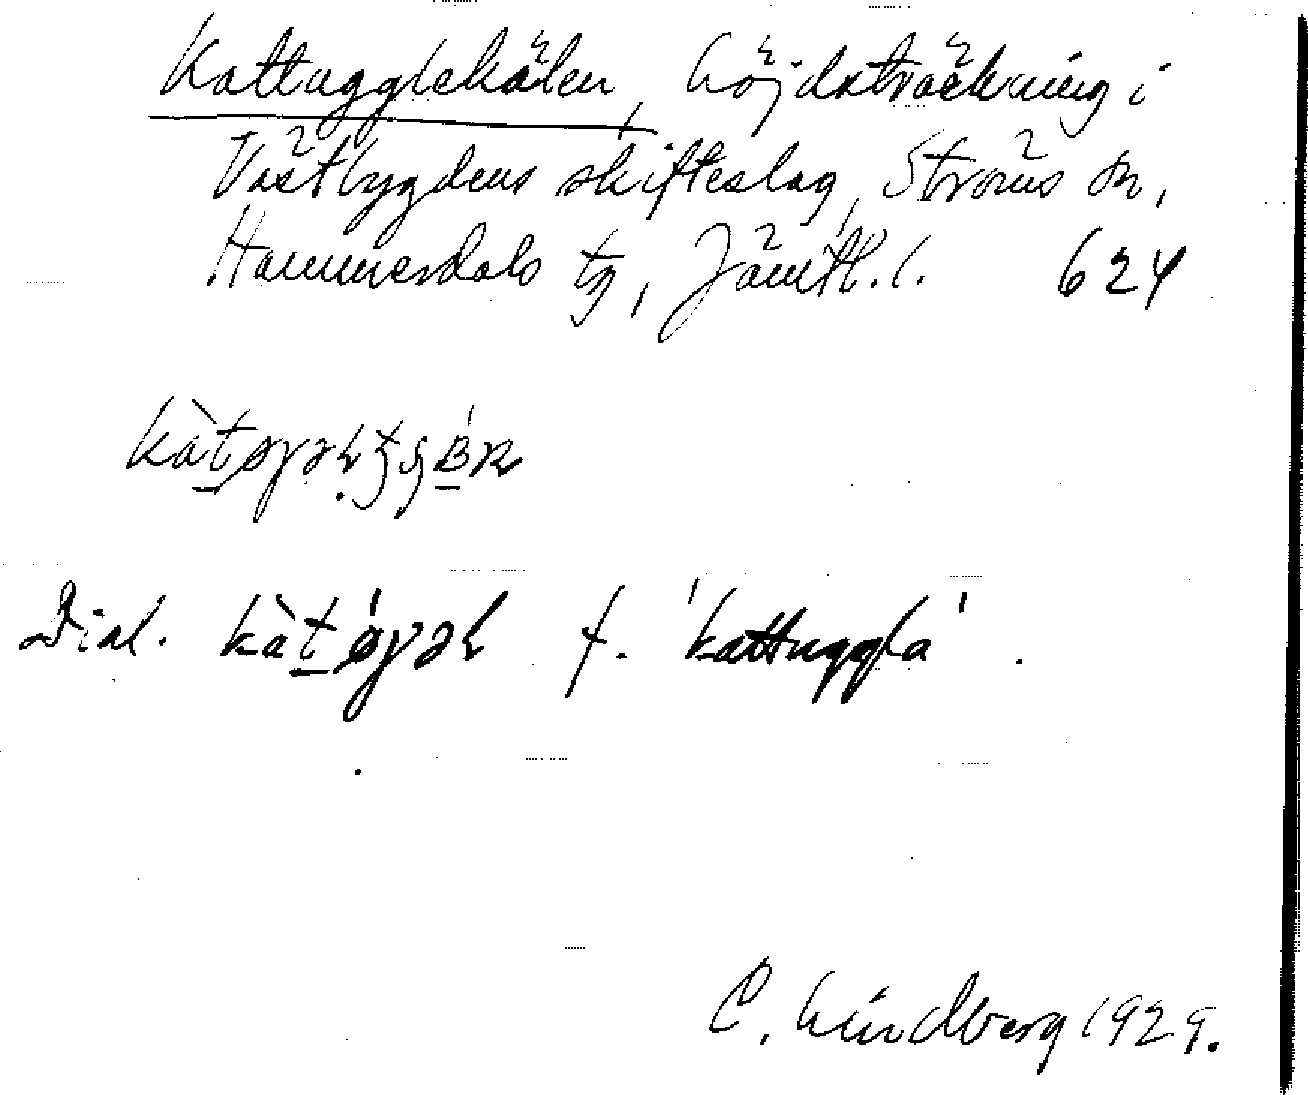 Kattugglekölen, höjdsträckning i
Västbygdens skifteslag, Ströms sn,
Hammerdals tg, Jämtl. l. 624
Dial. f. 'kattuggla'.
C. Lindberg 1929.